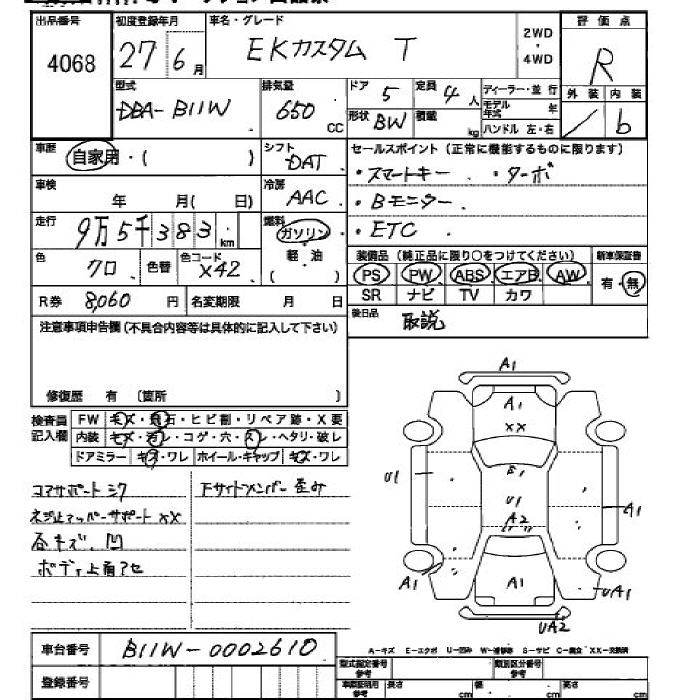 出品番号 初度登録年月 車名・グレード 評価点
4068 27年6月 EKカスタム T 2WD・4WD R
型式 排気量 ドア 定員 ディーラー・並行 外装 内装
DBA-B11W 650CC 5 4人 モデル年式 年 / b
形状 BW 積載 kg ハンドル 左・右
車歴 自家用・( ) シフト DAT セールスポイント(正常に機能するものに限ります)
車検 年 月( 日) 冷房 AAC ・スマートキー ・ターボ
・Bモニター
走行 9万5千383km 燃料 ガソリン 軽・油 ( ) ・ETC
色 クロ 色替 色コード X42 装備品(純正品に限り○をつけてください) 新車保証書
PS PW ABS エアB AW 有・無
R券 8,060円 名変期限 月 日 SR ナビ TV カワ
注意事項申告欄(不具合内容等は具体的に記入して下さい) 後日品 取説
修復歴 有 〔箇所 〕
検査員記入欄 FW キズ・飛石・ヒビ割・リペア跡・X要
内装 キズ・汚レ・コゲ・穴・スレ・ヘタリ・破レ
ドアミラー キズ・ワレ ホイール・キャップ キズ・ワレ
コアサポート シワ 下サイドメンバー 歪み
ネジ止アッパーサポート XX
各キズ、凹
ボディ上面アセ
A1
A1
XX
E1
U1
U1
A2
A1
A1
A1
UA1
UA2
車台番号 B11W-0002610
登録番号
A-キズ E-エクボ U-凹み W-補修跡 S-サビ C-腐食 XX-交換済
型式指定番号 参考 類別区分番号 参考
車庫証明用 参考 長さ cm 幅 cm 高さ cm